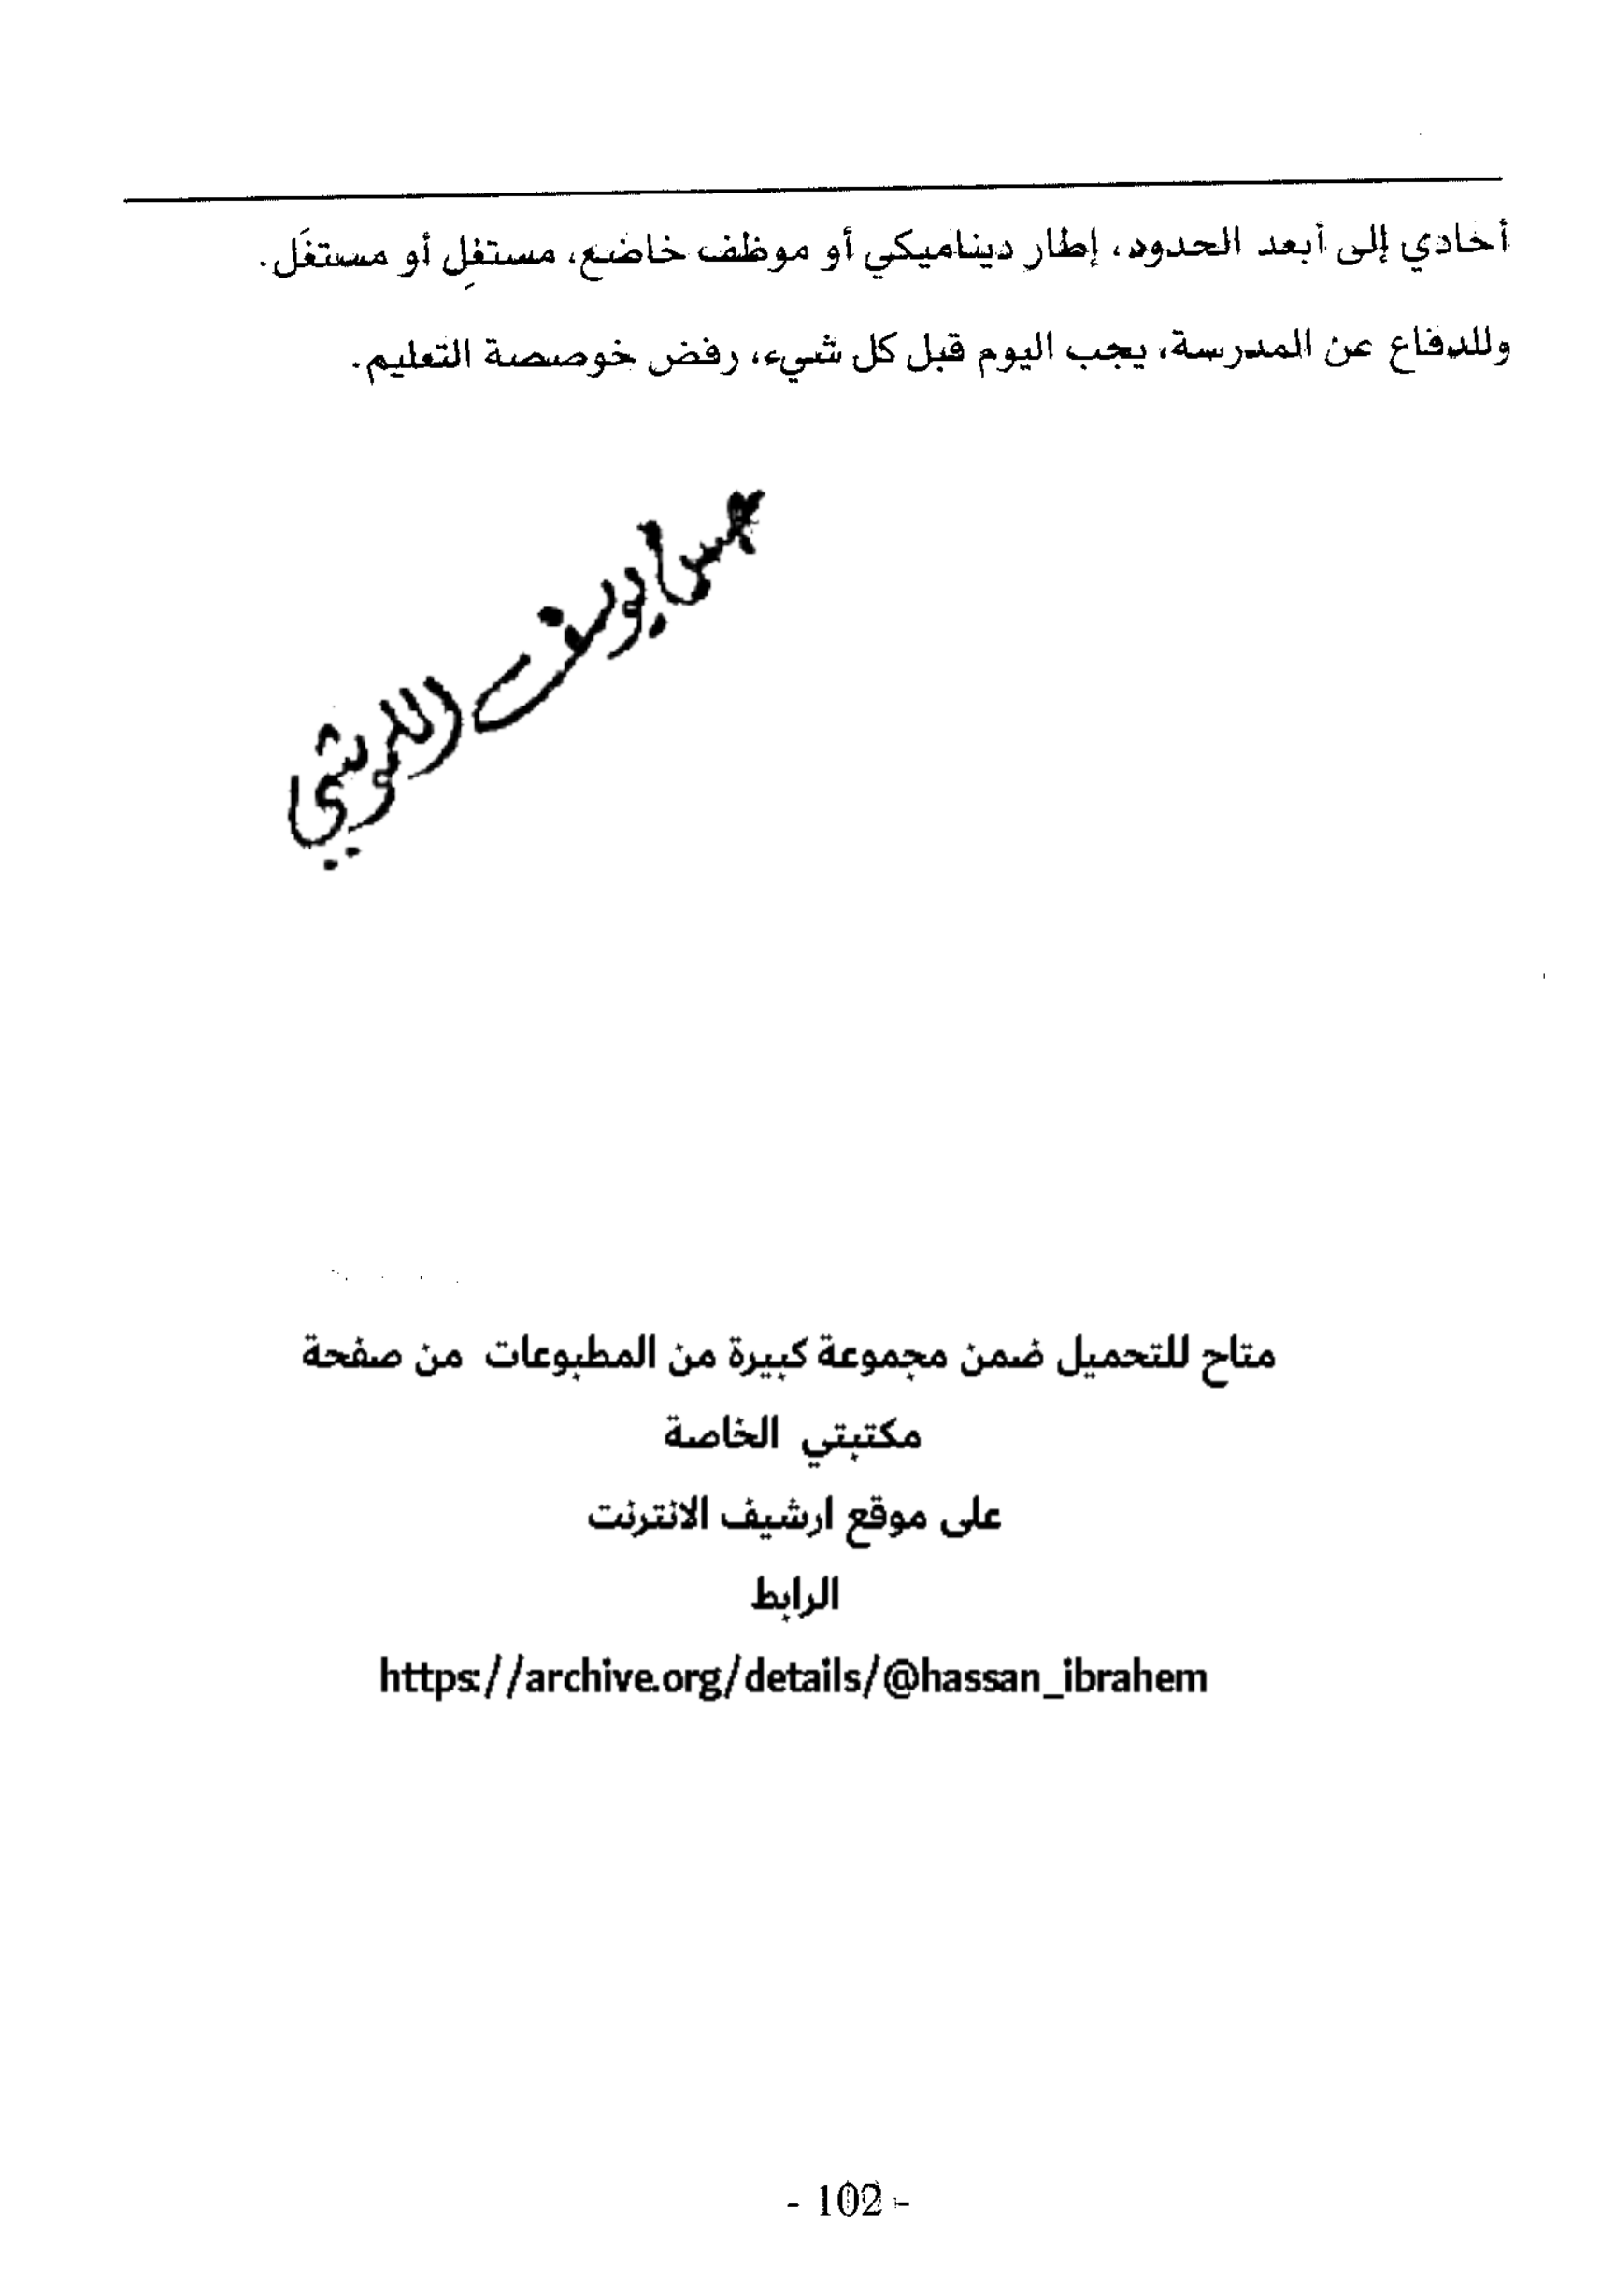 أحادي إلى أبعد الحدود، إطار ديناميكي أو موظف خاضع، مستغِل أو مستغَل.
وللدفاع عن المدرسة، يجب اليوم قبل كل شيء، رفض خوصصة التعليم.
يوسف
متاح للتحميل ضمن مجموعة كبيرة من المطبوعات من صفحة
مكتبتي الخاصة
على موقع ارشيف الانترنت
الرابط
https://archive.org/details/@hassan_ibrahem
- 102 -